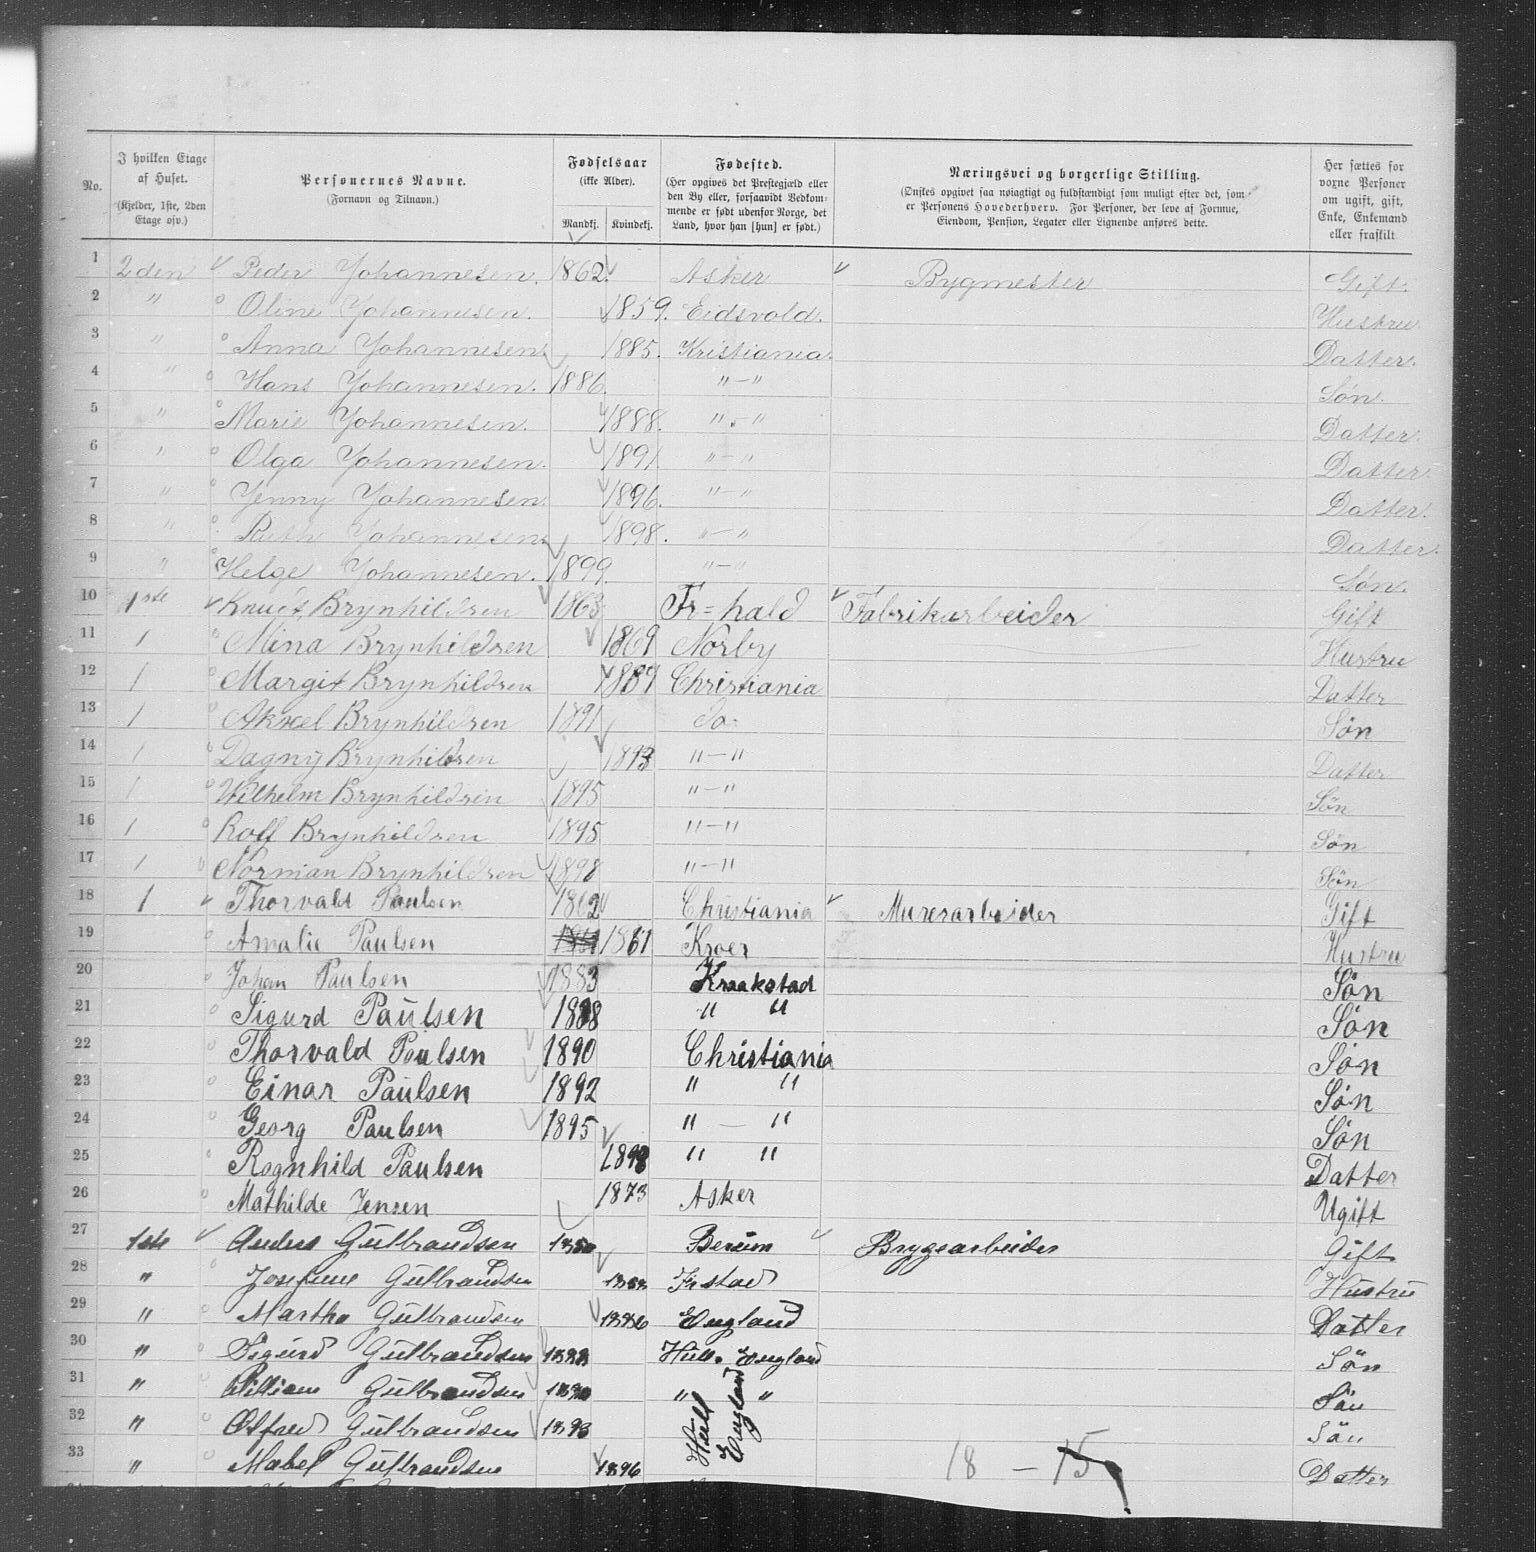 No. | I hvilken Etage af Huset. (Kjelder, 1ste, 2den Etage osv.) | Personernes Navne. (Fornavn og Tilnavn.) | Fødselsaar (ikke Alder). Mandkj. Kvindekj. | Fødested. (Her opgives det Prestegjæld eller den By eller, forsaavidt Vedkommende er født udenfor Norge, det Land, hvor han [hun] er født.) | Næringsvei og borgerlige Stilling. (Ønskes opgivet saa nøiagtigt og fuldstændigt som muligt efter det, som er Personens Hovederhverv. For Personer, der leve af Formue, Eiendom, Pension, Legater eller Lignende anføres dette.) | Her sættes for voxne Personer om ugift, gift, Enke, Enkemand eller fraskilt
1 2den Peder Johannesen. 1862. Asker Bygmester Gift.
2 " Oline Johannesen. 1859. Eidsvold. Hustru
3 " Anna Johannesen. 1885. Kristiania. Datter.
4 " Hans Johannesen. 1886. "-" Søn.
5 " Marie Johannesen. 1888. "-" Datter.
6 " Olga Johannesen. 1891 "-" Datter.
7 " Jenny Johannesen. 1896. "-" Datter.
8 " Ruth Johannesen. 1898. "-" Datter.
9 " Helge Johannesen. 1899. "-" Søn.
10 1ste Knudt Brynhildsen 1863 Fr=hald Fabrikarbeider Gift
11 1 Mina Brynhildsen 1869 Norby Hustru
12 1 Margit Brynhildsen 1889 Christiania Datter
13 1 Aksel Brynhildsen 1891 Do Søn
14 1 Dagny Brynhildsen 1893 "-" Datter
15 1 Wilhelm Brynhildsen 1895 "-" Søn
16 1 Rolf Brynhildsen 1895 "-" Søn
17 1 Norman Brynhildsen 1898 "-" Søn
18 1 Thorvald Paulsen 1862 Christiania Murerarbeider Gift
19 Amalie Paulsen 1861 Kroer Hustru
20 Johan Paulsen 1883 Kraakstad Søn
21 Sigurd Paulsen 1888 " " Søn
22 Thorvald Paulsen 1890 Christiania Søn
23 Einar Paulsen 1892 " " Søn
24 Georg Paulsen 1895 " - " Søn
25 Ragnhild Paulsen 1898 " " Datter
26 Mathilde Jensen 1873 Asker Ugift
27 1ste Anders Gulbrandsen 1850 Berum Brygsarbeider Gift
28 " Josefine Gulbrandsen Frstad Hustru
29 " Martha Gulbrandsen 1886 England Datter
30 " Sigurd Gulbrandsen 1888 Hull. England Søn
31 " William Gulbrandsen 1890 " " Søn
32 " Alfred Gulbrandsen 1893 Hull England Søn
33 " Mabel Gulbrandsen 1896 Datter
18 – 15